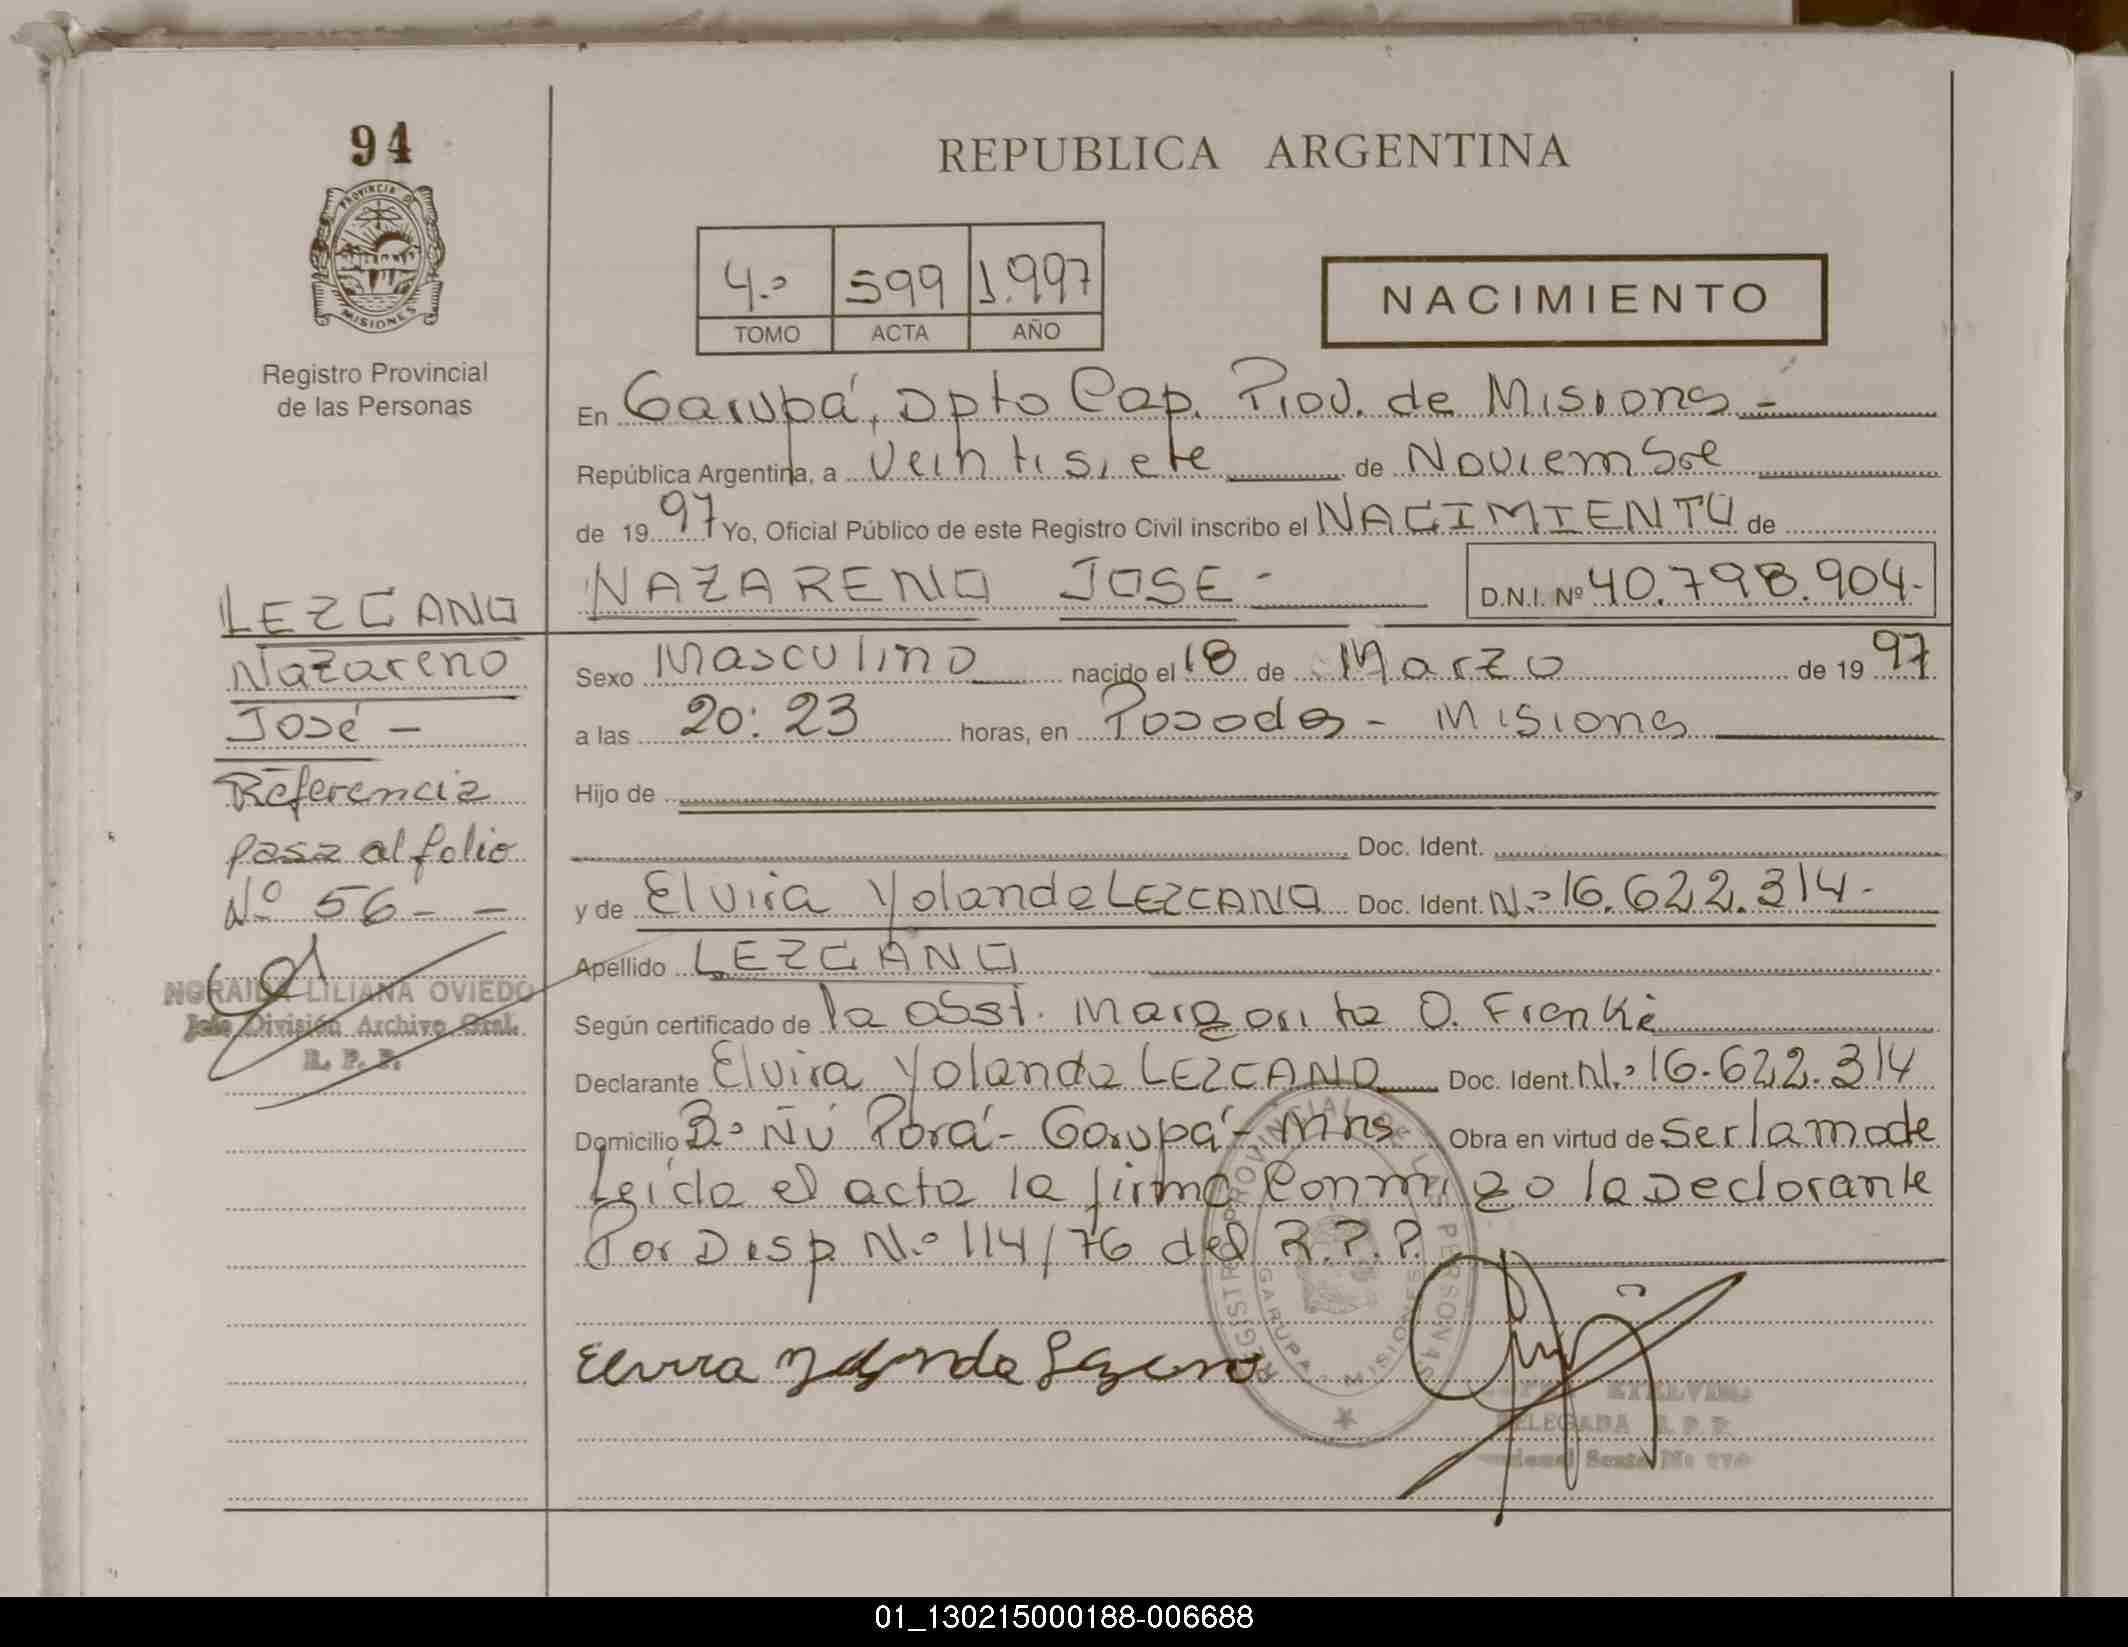 94
PROVINCIA DE
MISIONES
Registro Provincial
de las Personas
LEZCANO
Nazareno
José -
Referencia
pasa al folio
Nº 56 - -
NORAIDA LILIANA OVIEDO
Jefe División Archivo Gral.
R. P. P.
REPUBLICA ARGENTINA
4.º 599 1.997
TOMO ACTA AÑO
NACIMIENTO
En Garupá, Dpto Cap. Prov. de Misiones -
República Argentina, a veintisiete de Noviembre
de 1997 Yo, Oficial Público de este Registro Civil inscribo el NACIMIENTO de
NAZARENO JOSE - D.N.I. Nº 40.798.904-
Sexo Masculino nacido el 18 de Marzo de 1997
a las 20:23 horas, en Posadas - Misiones
Hijo de
Doc. Ident.
y de Elvira Yolanda LEZCANO Doc. Ident. N.º 16.622.314-
Apellido LEZCANO
Según certificado de la obst. Margarita O. Frenke
Declarante Elvira Yolanda LEZCANO Doc. Ident. N.º 16.622.314
Domicilio B.º Ñú Porá - Garupá - Mns Obra en virtud de Ser la madre
Leída el acta la firma Conmigo la Declarante
Por Disp. N.º 114/76 del R.P.P.
Elvira Yolanda Lezcano
REGISTRO PROVINCIAL DE LAS PERSONAS
GARUPA - MISIONES
ETELVINA
DELEGADA R. P. P.
01_130215000188-006688